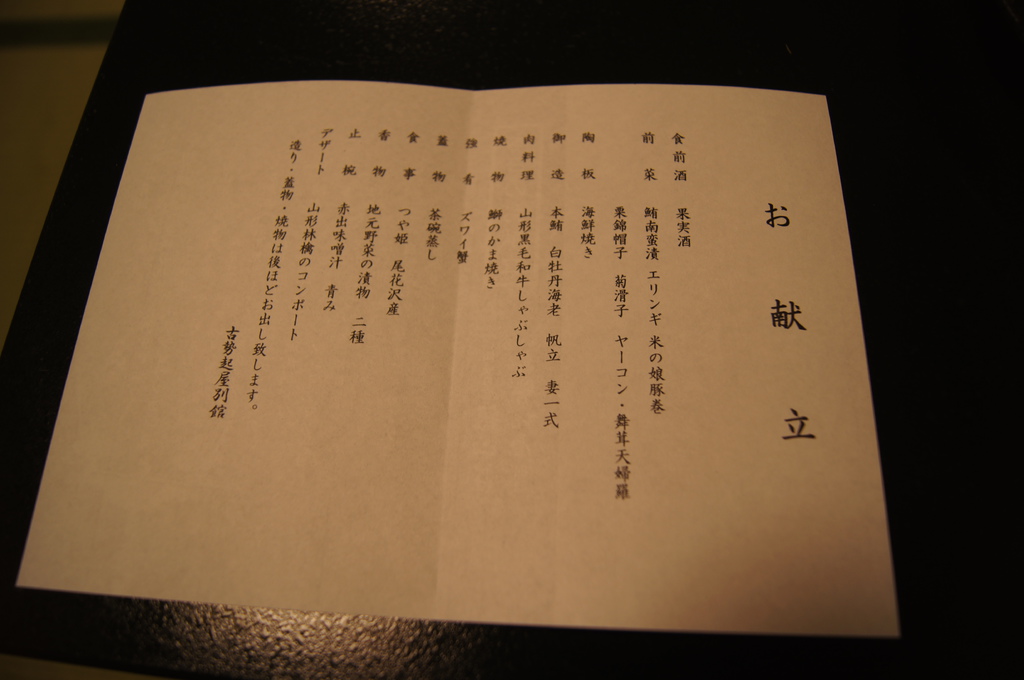 お献立
食前酒 果実酒
前菜 鮪南蛮漬 エリンギ 米の娘豚巻
栗錦帽子 菊滑子 ヤーコン・舞茸天婦羅
陶板 海鮮焼き
御造 本鮪 白牡丹海老 帆立 妻一式
肉料理 山形黒毛和牛しゃぶしゃぶ
焼物 鰤のかま焼き
強肴 ズワイ蟹
蓋物 茶碗蒸し
食事 つや姫 尾花沢産
香物 地元野菜の漬物 二種
止椀 赤出味噌汁 青み
デザート 山形林檎のコンポート
造り・蓋物・焼物は後ほどお出し致します。
古勢起屋別館